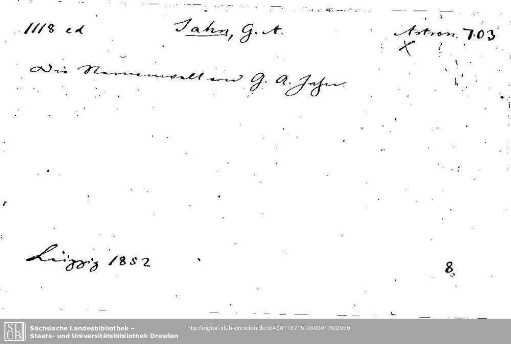 1118 cd Jahn, G. A. Astron. 703
X
Die Sternenwelt von G. A. Jahn.
Leipzig 1852 8.
SLUB Sächsische Landesbibliothek –
Staats- und Universitätsbibliothek Dresden